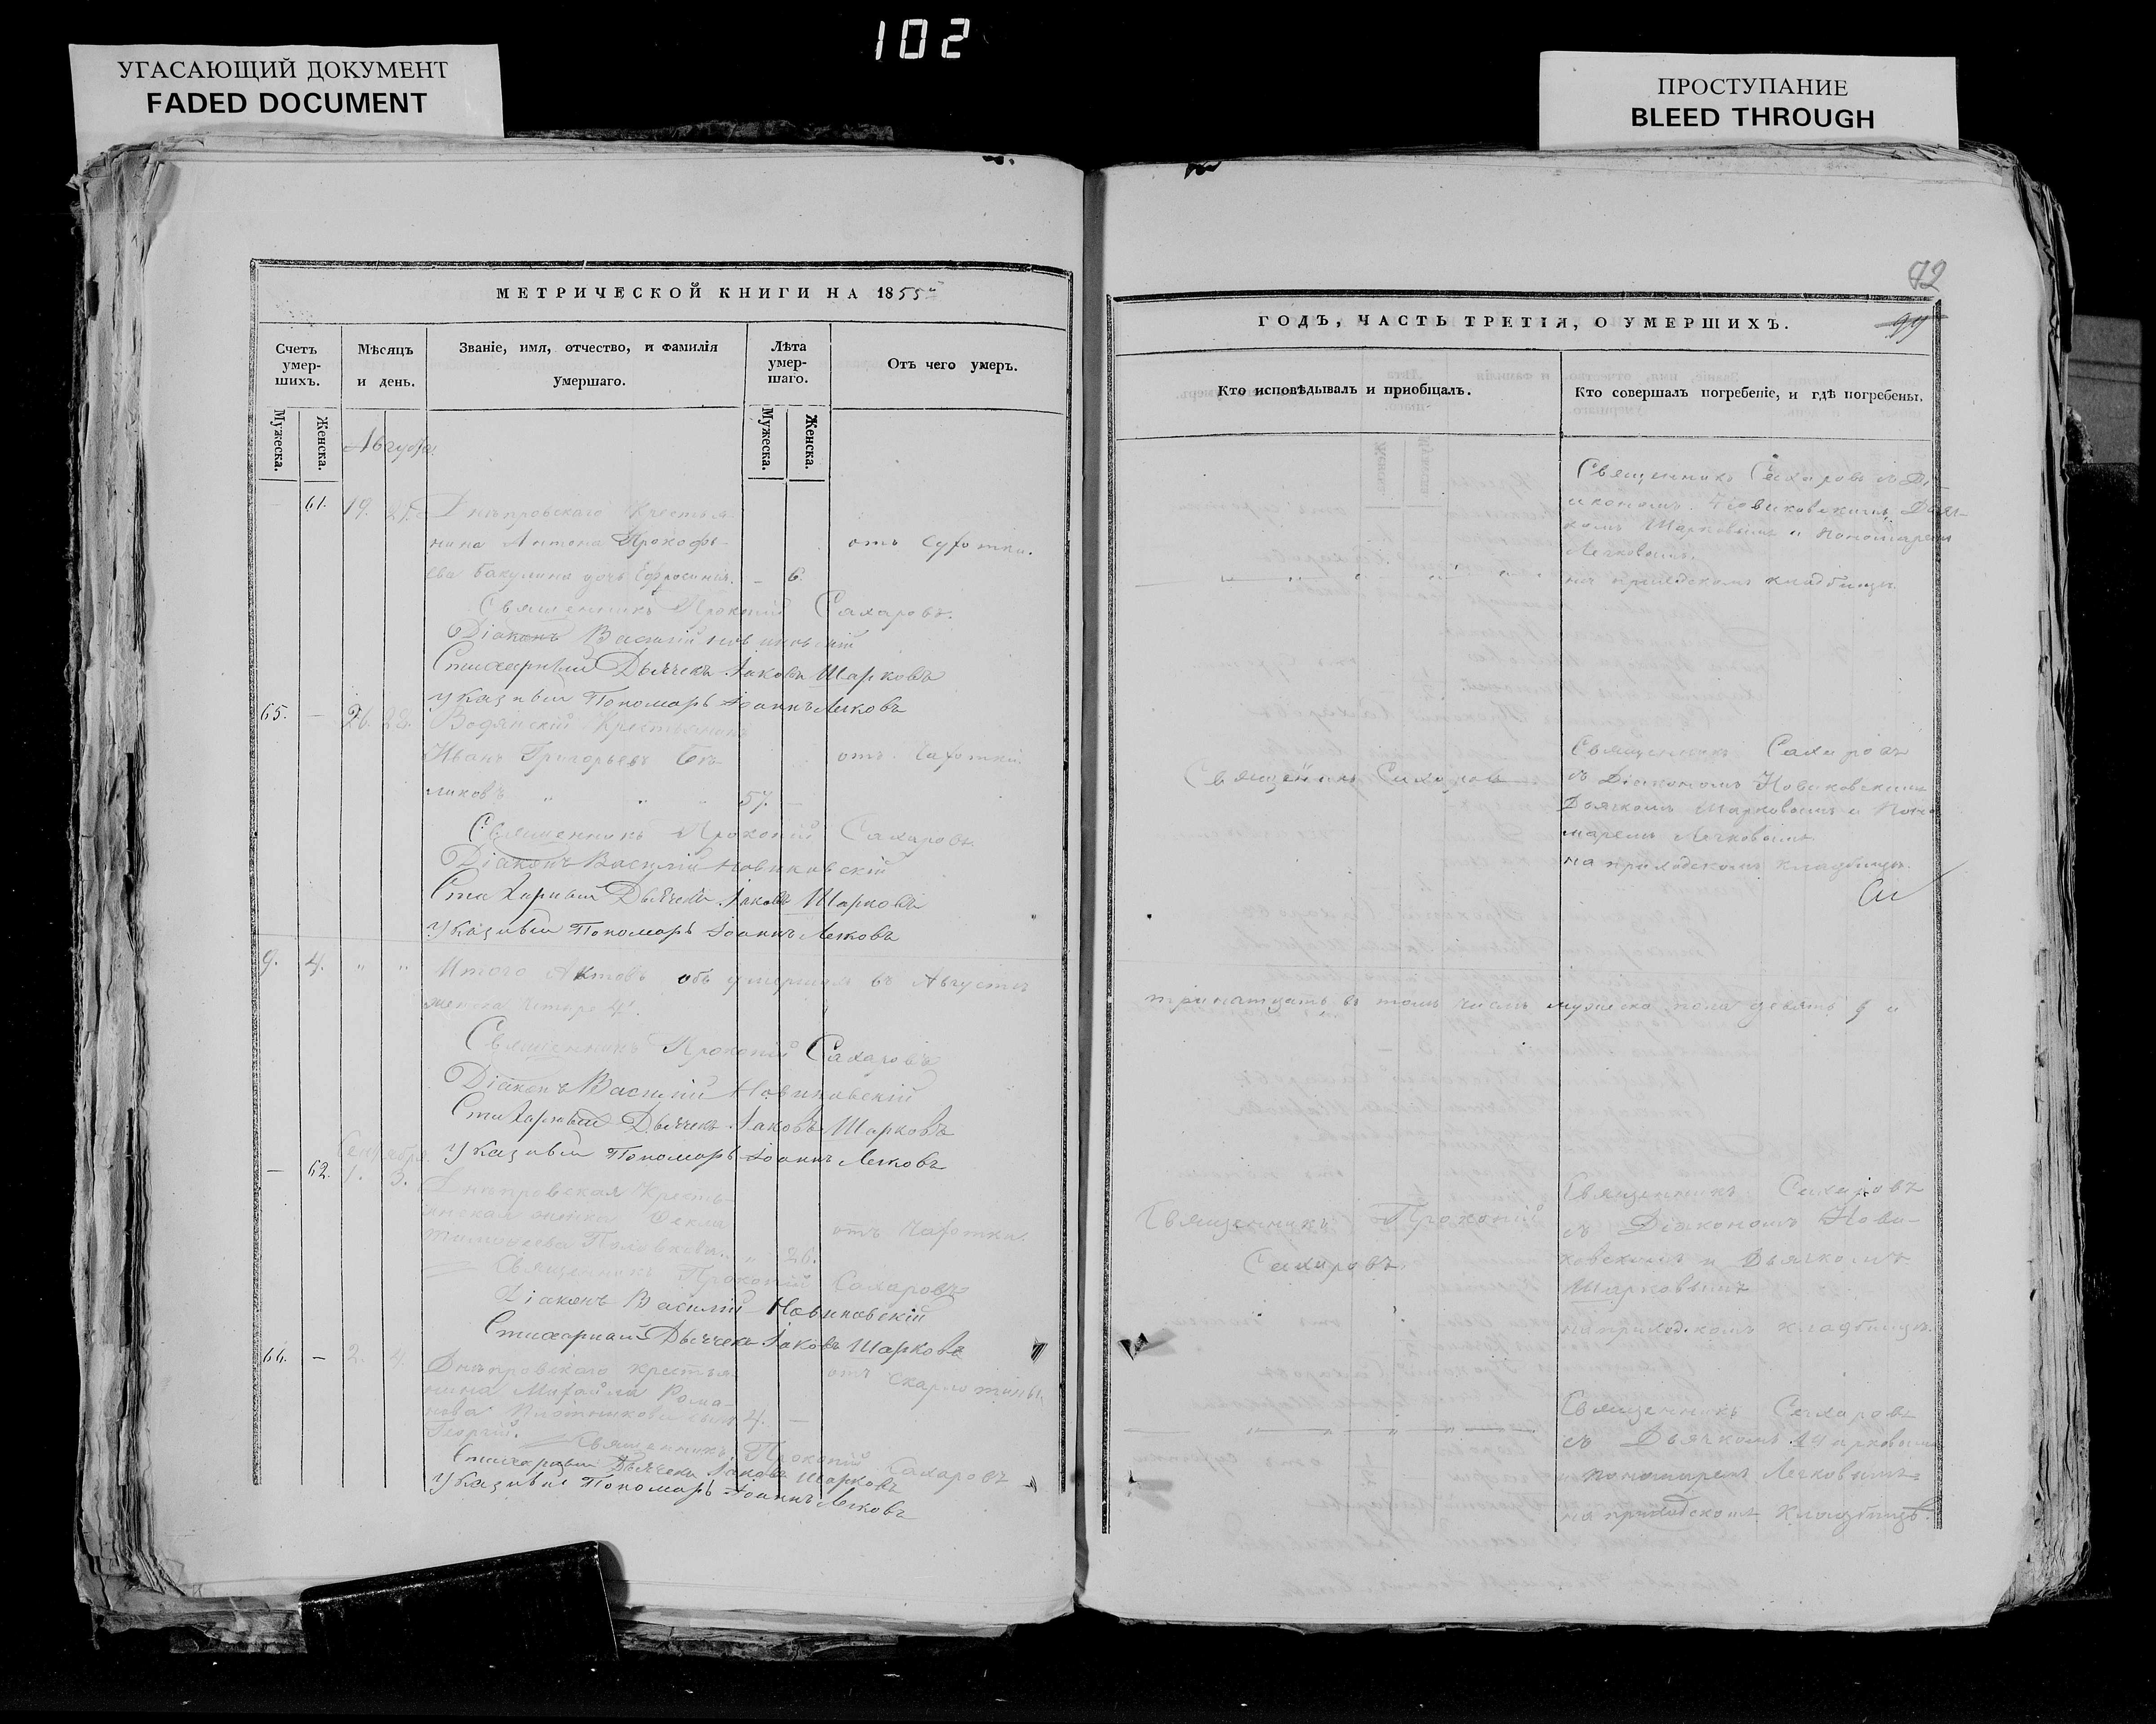 102
УГАСАЮЩИЙ ДОКУМЕНТ
FADED DOCUMENT
ПРОСТУПАНИЕ
BLEED THROUGH
МЕТРИЧЕСКОЙ КНИГИ НА 1855
Счетъ умер-шихъ.
Мѣсяцъ и день.
Званіе, имя, отчество, и фамилія умершаго.
Лѣта умер-шаго.
Отъ чего умеръ.
Мужеска.
Женска.
Мужеска.
Женска.
Августа
61. 19. 21. Днѣпровскаго Крестья-
нина Антона Прокофь-
ева Бакулина дочь Ефросинія. – 6.
Священникъ Прокопій Сахаровъ.
Діаконъ Василій Новиковскій
Стихарный Дьячекъ Іаковъ Шарковъ
Указный Пономарь Іоаннъ Лечковъ
65. – 26. 28. Водянскій Крестьянинъ
Иванъ Григорьевъ
отъ чахотки.
ликовъ " " 57. –
Священникъ Прокопій Сахаровъ
Діаконъ Василій Новиковскій
Стихарный Дьячекъ Іаковъ Шарковъ
Указный Пономарь Іоаннъ Лечковъ
9. 4. " " Итого Актовъ объ умершихъ въ Августѣ
женска четыре 4.
Священникъ Прокопій Сахаровъ
Діаконъ Василій Новиковскій
Стихарный Дьячекъ Іаковъ Шарковъ
Указный Пономарь Іоаннъ Лечковъ
Сентября
– 62. 1. 3. Днѣпровская кресть-
янская Фекла
отъ чахотки.
Тимофеева " 26.
Священникъ Прокопій Сахаровъ
Діаконъ Василій Новиковскій
Стихарный Дьячекъ Іаковъ Шарковъ
66. – 2. 4. Днѣпровскаго крестья-
нина Михайла Рома-
отъ скарлотины
нова Плотникова сынъ 4. –
Георгій.
Священникъ Прокопій Сахаровъ
Стихарный Дьячекъ Іаковъ Шарковъ
Указный Пономарь Іоаннъ Лечковъ
72
99
ГОДЪ, ЧАСТЬ ТРЕТІЯ, О УМЕРШИХЪ.
Кто исповѣдывалъ и пріобщалъ.
Кто совершалъ погребеніе, и гдѣ погребены.
Священникъ Сахаровъ съ Ді-
акономъ Новиковскимъ, Дьяч-
комъ Шарковымъ и Пономаремъ
Лечковымъ.
на приходскомъ кладбищѣ.
Священникъ Сахаровъ
Священникъ Сахаровъ
съ Діакономъ Новиковскимъ
Дьячкомъ Шарковымъ и Поно
маремъ Лечковымъ
на приходскомъ кладбищѣ.
тринатцать въ томъ числѣ мужеска пола девять 9 и
Священникъ Прокопій
Сахаровъ.
Священникъ Сахаровъ
съ Діакономъ Нови-
ковскимъ и Дьячкомъ
Шарковымъ
на приходскомъ кладбищѣ.
Священникъ Сахаровъ
съ Дьячкомъ Шарковымъ
пономаремъ Лечковымъ
на приходскомъ кладбищѣ.